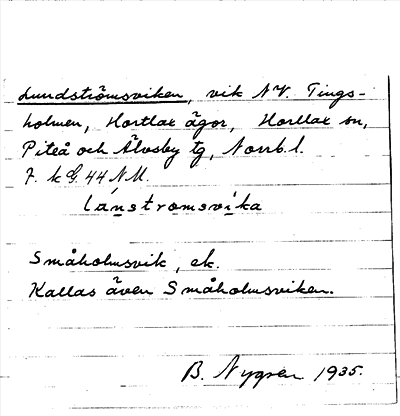 Lundströmsviken, vik N.V. Tings-
holmen, Hortlax ägor, Hortlax sn,
Piteå och Älvsby tg, Norrb. l.
7. k G. 44 N.M.
lánstromsvika
Småholmsvik, ek.
Kallas även Småholmsviken.
B. Nygren 1935.